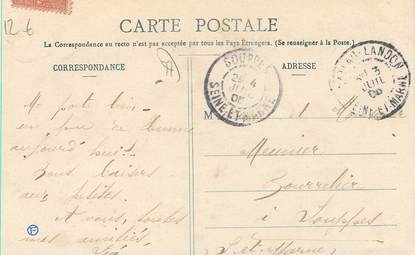 12 €
CARTE POSTALE
La Correspondance au recto n'est pas acceptée par tous les Pays Étrangers. (Se renseigner à la Poste.)
CORRESPONDANCE
ADRESSE
SOUPPES
SEINE-ET-MARNE
LANDON
3
JUIL
SEINE-ET-MARNE
aujourd'hui
Bons baisers
aux petites
A vous, toutes
mes amitiés
M
Meunier
Bourrelier
à Souppes
S. et Marne